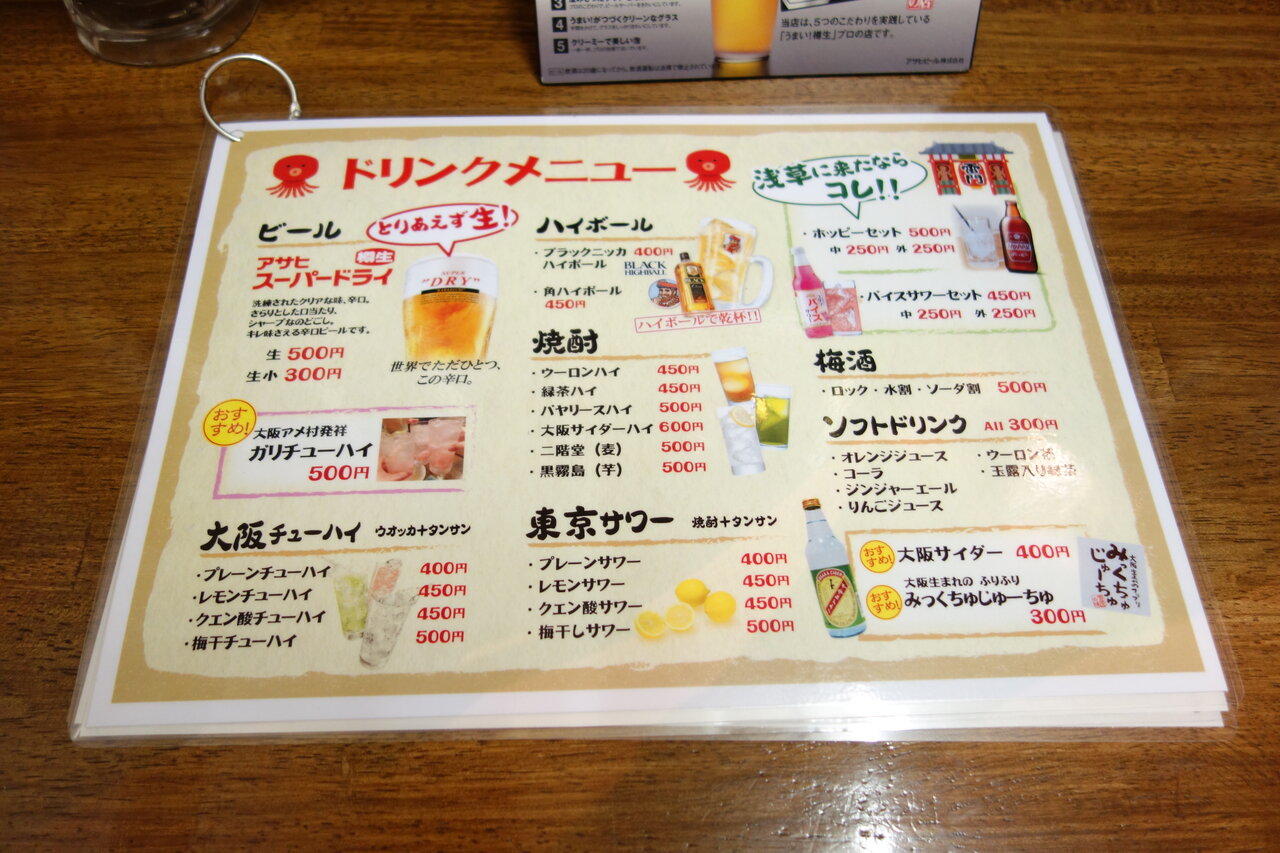 4 うまい!がつづくクリーンなグラス
5 クリーミーで美しい泡
当店は、5つのこだわりを実践している
「うまい!樽生」プロの店です。
アサヒビール株式会社
ドリンクメニュー
浅草に来たなら
コレ!!
雷門
ビール
とりあえず生!
アサヒ
樽生
スーパードライ
洗練されたクリアな味、辛口。
さらりとした口当たり、
シャープなのどごし。
キレ味さえる辛口ビールです。
生 500円
生小 300円
SUPER
"DRY"
世界でただひとつ、
この辛口。
おすすめ!
大阪アメ村発祥
ガリチューハイ
500円
大阪チューハイ ウオッカ+タンサン
・プレーンチューハイ 400円
・レモンチューハイ 450円
・クエン酸チューハイ 450円
・梅干チューハイ 500円
ハイボール
・ブラックニッカ 400円
ハイボール
BLACK
HIGHBALL
・角ハイボール
450円
ハイボールで乾杯!!
焼酎
・ウーロンハイ 450円
・緑茶ハイ 450円
・バヤリースハイ 500円
・大阪サイダーハイ 600円
・二階堂(麦) 500円
・黒霧島(芋) 500円
東京サワー 焼酎+タンサン
・プレーンサワー 400円
・レモンサワー 450円
・クエン酸サワー 450円
・梅干しサワー 500円
・ホッピーセット 500円
中 250円 外 250円
・バイスサワーセット 450円
中 250円 外 250円
バイス
梅酒
・ロック・水割・ソーダ割 500円
ソフトドリンク All 300円
・オレンジジュース
・コーラ
・ジンジャーエール
・りんごジュース
・ウーロン茶
・玉露入り緑茶
おすすめ! 大阪サイダー 400円
大阪生まれの ふりふり
おすすめ! みっくちゅじゅーちゅ
300円
みっくちゅ
じゅーちゅ